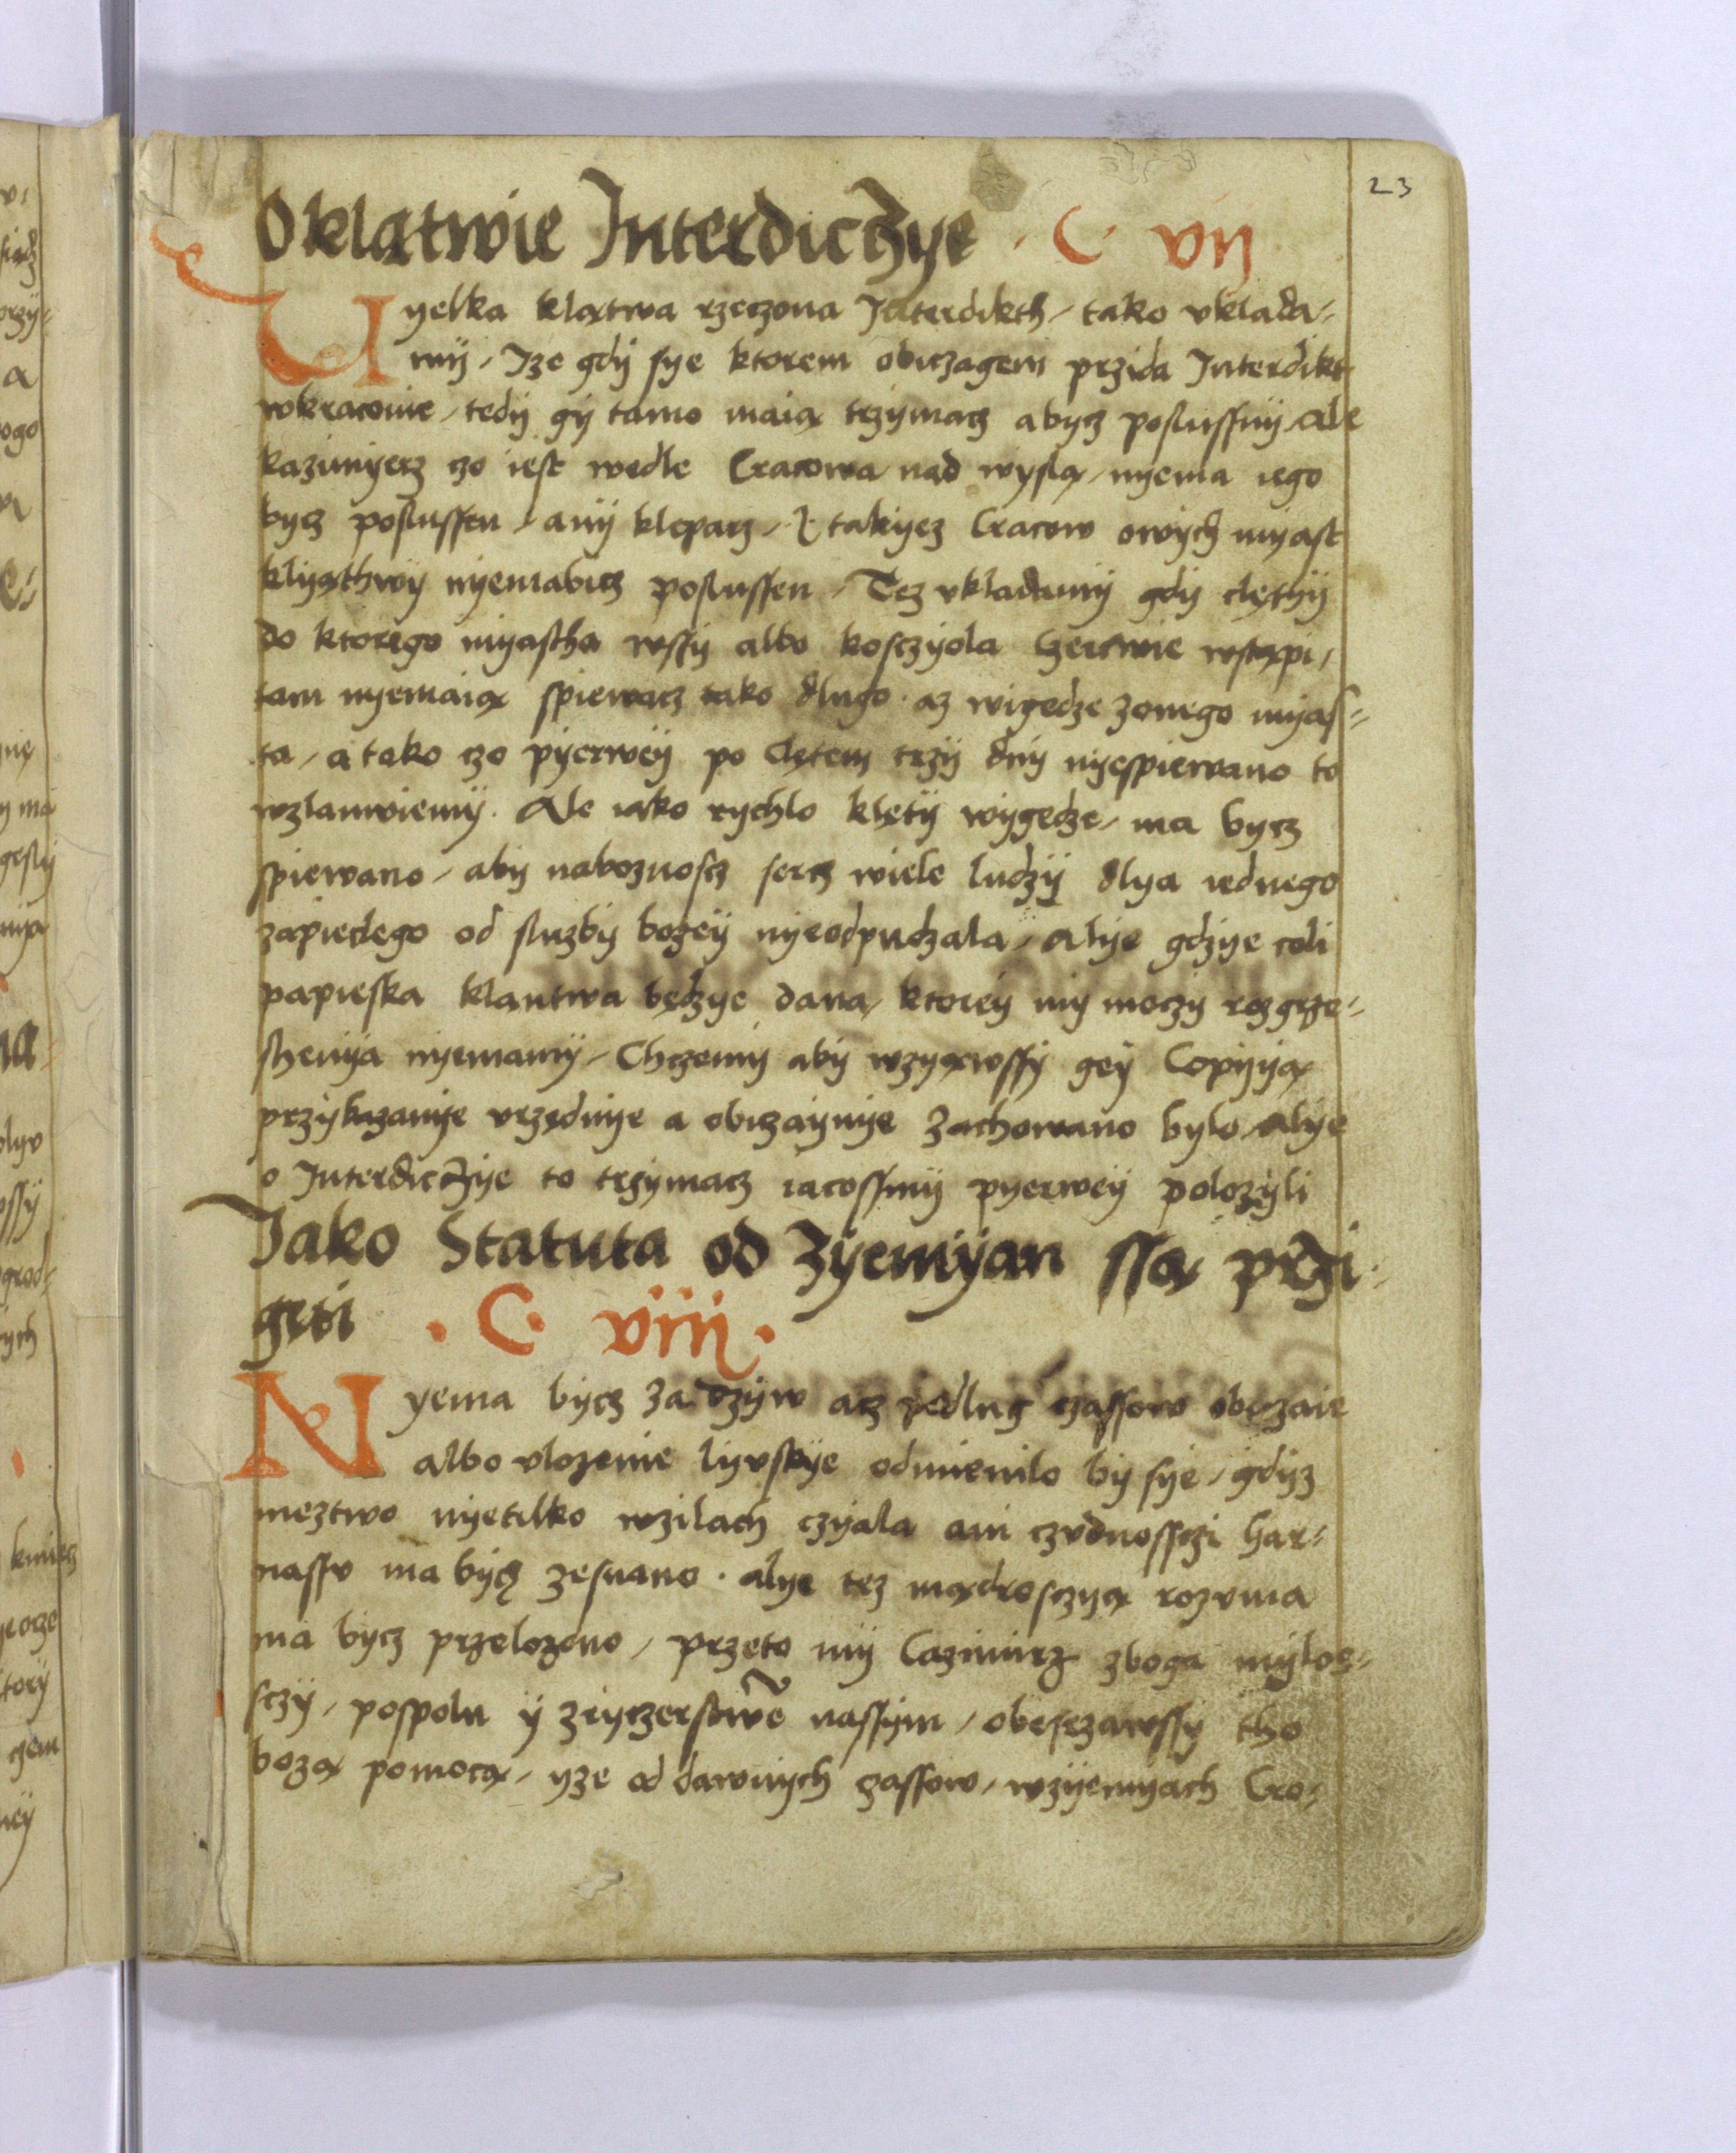 23
O klątwie Interdicżye · C · vij
Vyelka klątwa rzeczona Interdikth / tako vklada-
mÿ / Jze gdÿ sye ktorem obiczagem przida Interdikt
wkracowie / tedÿ gÿ tamo maią trzymacz a bycz poslussnÿ ale
kazimyerz czo iest wedle Cracowa nad wyslą / nyema iego
bycz poslussen / anÿ kleparz / takyez Cracow owych myast
klyąthwÿ nyemabicz poslussen / Tez vkladamÿ gdÿ clętÿ
do ktorego myastha wssÿ albo kosczyola czerkwie wstąpi /
tam nyemaią spiewacz tako dlugo · az wigedze zonego myas-
ta / a tako czo pyerwëÿ po clętem trzÿ dnÿ nyespiewano to
wzlamiemÿ · Ale iako rychlo klętÿ wÿgedze / ma bycz
spiewano / abÿ naboznoscz sercz wiele ludzÿ dlya iednego
zapieclego od sluzbÿ bozëÿ nyeodpudzala / alye gdzye coli
papieska klantwa będzye dana / ktorëÿ mÿ moczÿ rozgrze-
shenya nyemamÿ / Chczemÿ abÿ wzyąwssÿ gëÿ Copÿyą
przÿkazanye vrzędnye a obiczaÿnye zachowano bylo alye
o Interdiczÿe to trzymacz iacossmÿ pyerwëÿ polozÿli
Jako Statuta od zÿemÿan ssą przi-
gęti · C · viij ·
Nyema bÿcz za dzÿw acz podlug czassow obyczaie
albo vlozenie lyvskÿe odmienilo bÿ sÿe / gdÿz
meztwo nyetilko wzilach czyala ani czvdnossczi har-
nassv ma bÿcz zesnano · alye tez mądrosczyą rozvma
ma bycz przelozono / przeto mÿ Cazimirz zboga mÿlos-
sczÿ / pospolu ÿ zrÿczerstwē nassÿm / obeszrzawssÿ tho
bozą pomocą / yze od dawnÿch czassow / wzÿemyach Cro-